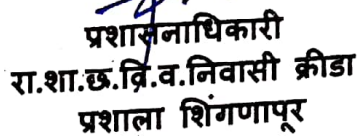 प्रशासनाधिकारी
रा.शा.छ.व्रि.व.निवासी क्रीडा
प्रशाला शिंगणापूर